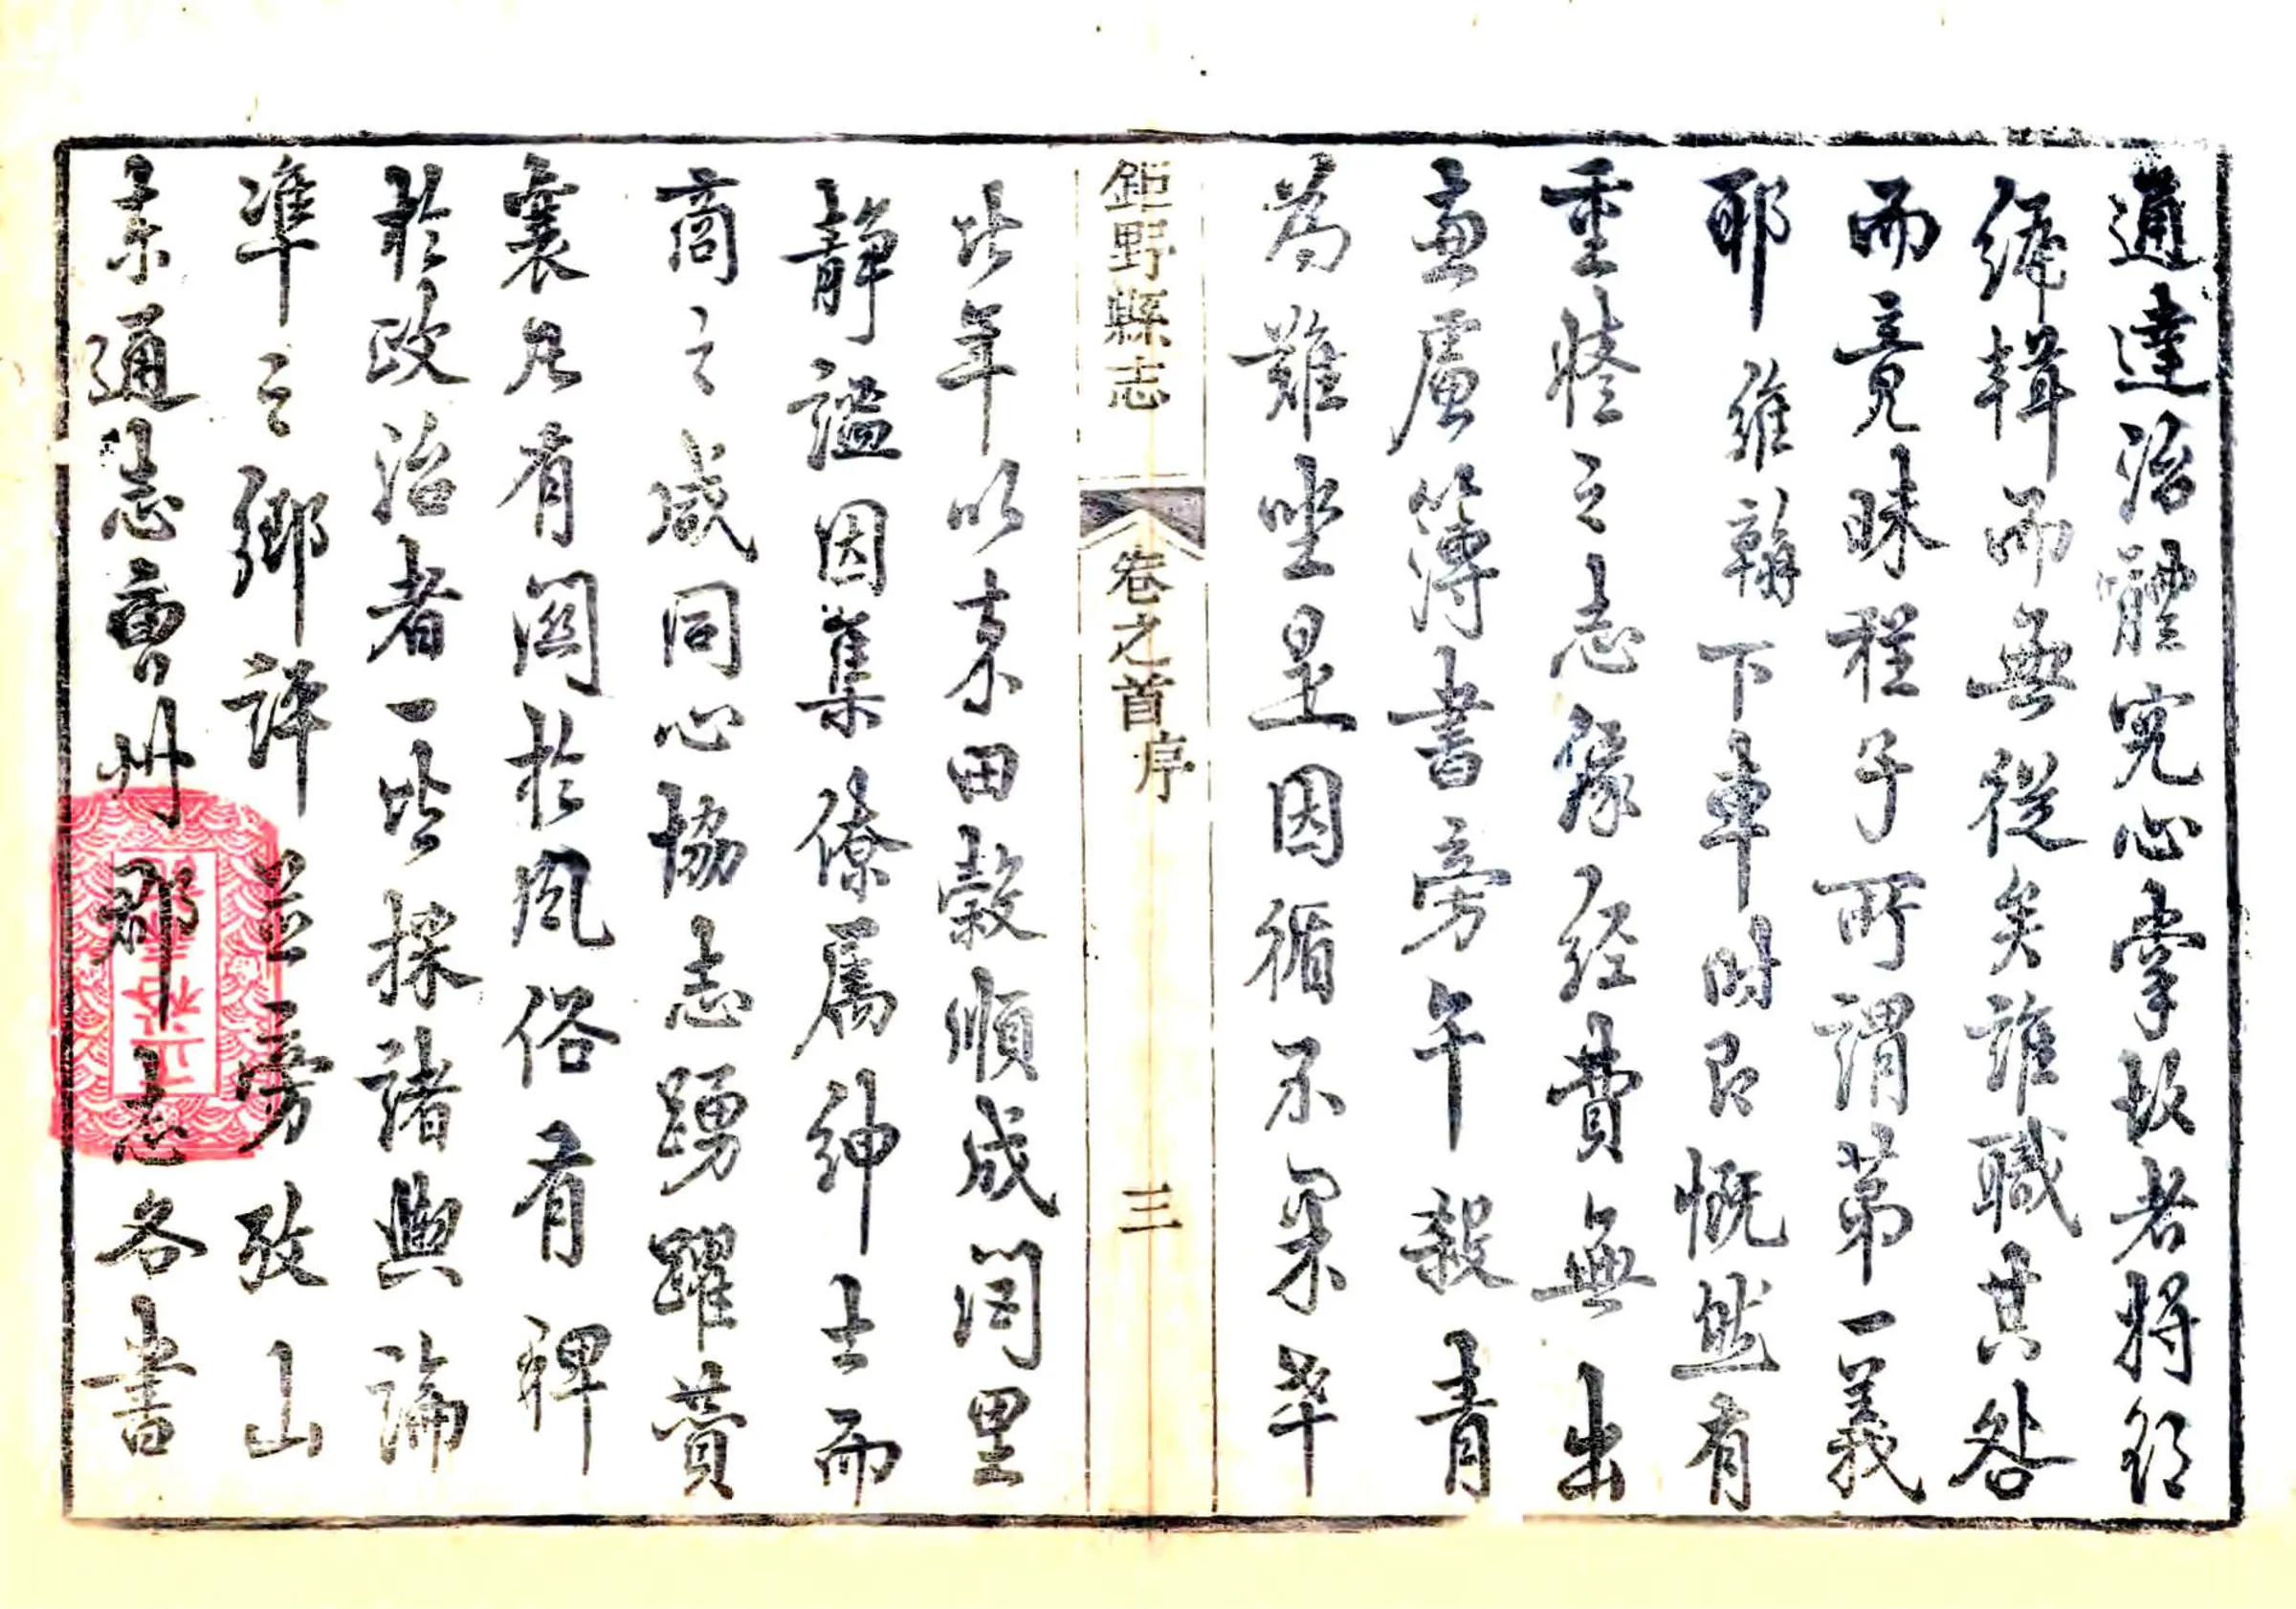 通達治體究心掌故者將欲
編輯而無從矣誰職其咎
而竟昧程子所謂第一義
耶維翰下車時即慨然有
重修之志緣經費無出
兼慮簿書旁午殺青
為難坐是因循不果举
鉅野縣志
卷之首 序
三
比年以來田穀順成閭里
靜謐因集僚屬紳士而
商之咸同心協志踴躍贊
襄凡有關於風俗有裨
於政治者一比採諸輿論
準之鄉評並旁攷山
東通志曹州郡志各書